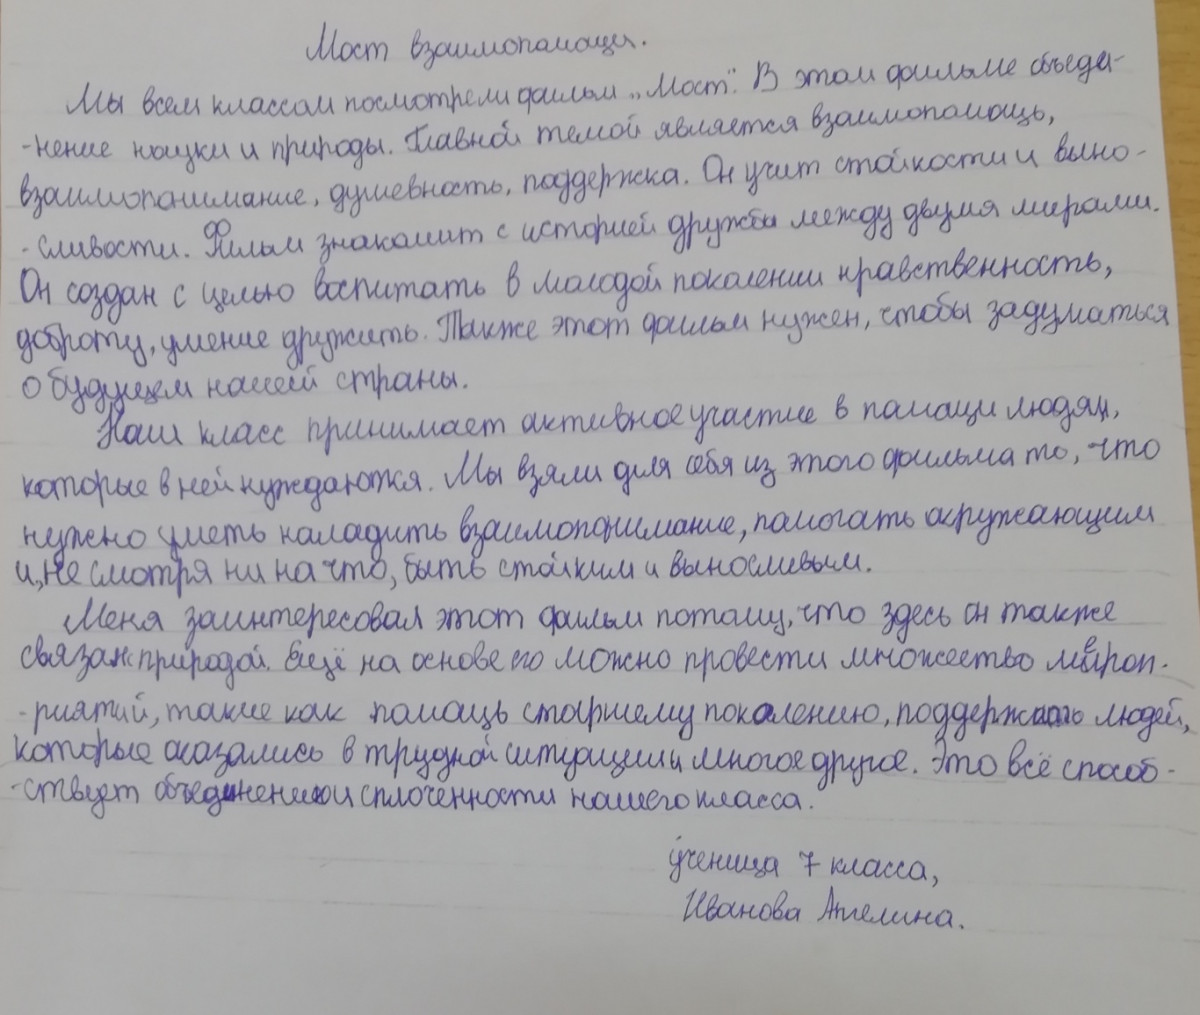 Мост взаимопомощи.
Мы всем классом посмотрели фильм „Мост". В этом фильме объеди-
-нение науки и природы. Главной темой является взаимопомощь,
взаимопонимание, душевность, поддержка. Он учит стойкости и выно-
-сливости. Фильм знакомит с историей дружбы между двумя мирами.
Он создан с целью воспитать в молодой поколении нравственность,
доброту, умение дружить. Также этот фильм нужен, чтобы задуматься
о будущем нашей страны.
Наш класс принимает активное участие в помощи людям,
которые в ней нуждаются. Мы взяли для себя из этого фильма то, что
нужно уметь наладить взаимопонимание, помогать окружающим
и, не смотря ни на что, быть стойким и выносливым.
Меня заинтересовал этот фильм потому, что здесь он также
связан с природой. Ещё на основе его можно провести множество мероп-
-риятий, такие как помощь старшему поколению, поддержать людей,
которые оказались в трудной ситуации и многое другое. Это всё способ-
-ствует объединению и сплоченности нашего класса.
ученица 7 класса,
Иванова Ангелина.